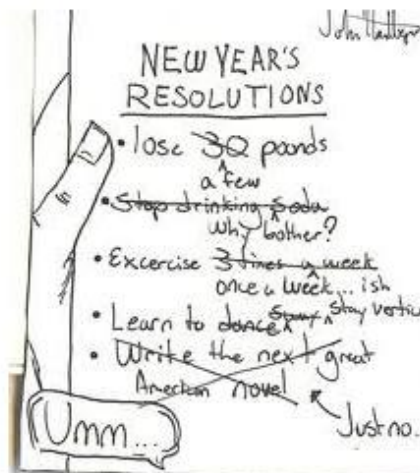 NEW YEAR'S
RESOLUTIONS
• lose 30 pounds
a few
• Stop drinking Soda
Why bother?
• Excercise 3 times a week
once a week... ish
• Learn to dance Stay vertic
• Write the next great
American novel
Just no.
Umm...